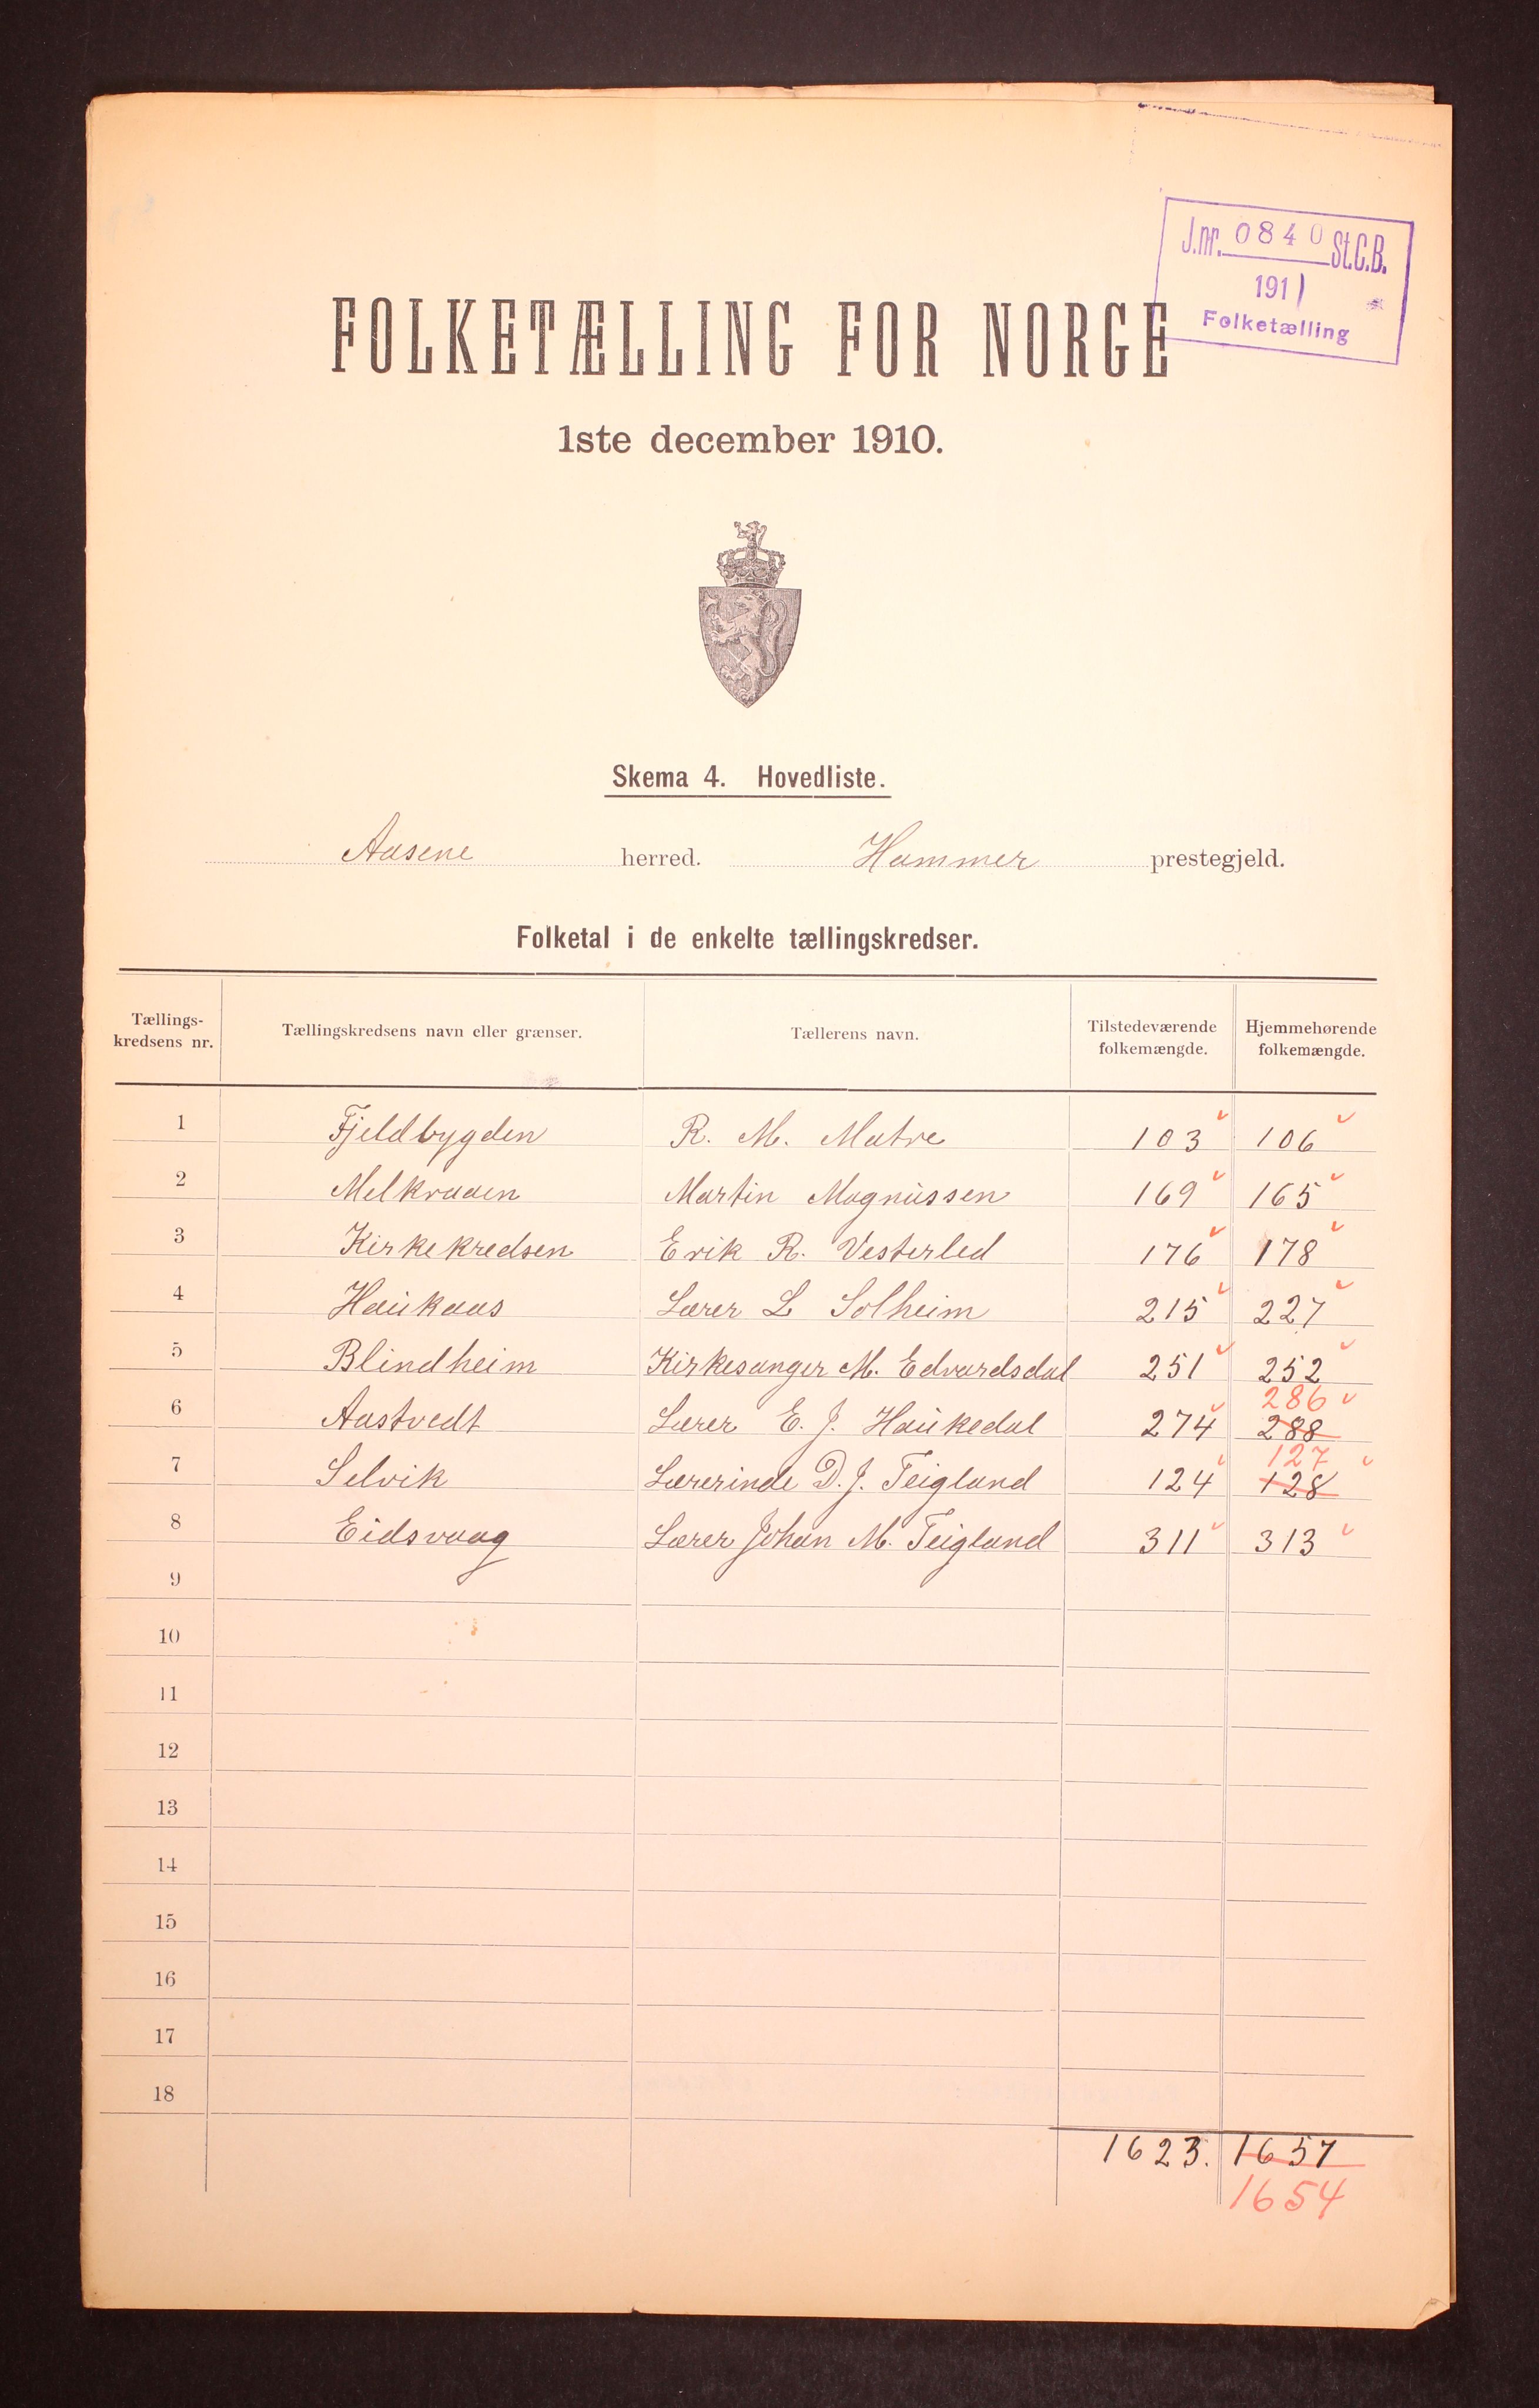 J.nr. 0840 St.C.B.
1911
Folketælling
FOLKETÆLLING FOR NORGE
1ste december 1910.
Skema 4. Hovedliste.
Aasene herred. Hammer prestegjeld.
Folketal i de enkelte tællingskredser.
Tællings-kredsens nr. Tællingskredsens navn eller grænser. Tællerens navn. Tilstedeværende folkemængde. Hjemmehørende folkemængde.
1 Fjeldbygden R. M. Matre 103 106
2 Melkraaen Martin Magnussen 169 165
3 Kirkekredsen Erik R. Vesterled 176 178
4 Haukaas Lærer L Solheim 215 227
5 Blindheim Kirkesanger M. Edvardsdal 251 252
286
6 Aastvedt Lærer E. J. Haukedal 274 288
127
7 Selvik Lærerinde D. J. Teigland 124 128
8 Eidsvaag Lærer Johan M. Teigland 311 313
9
10
11
12
13
14
15
16
17
18
1623. 1657
1654